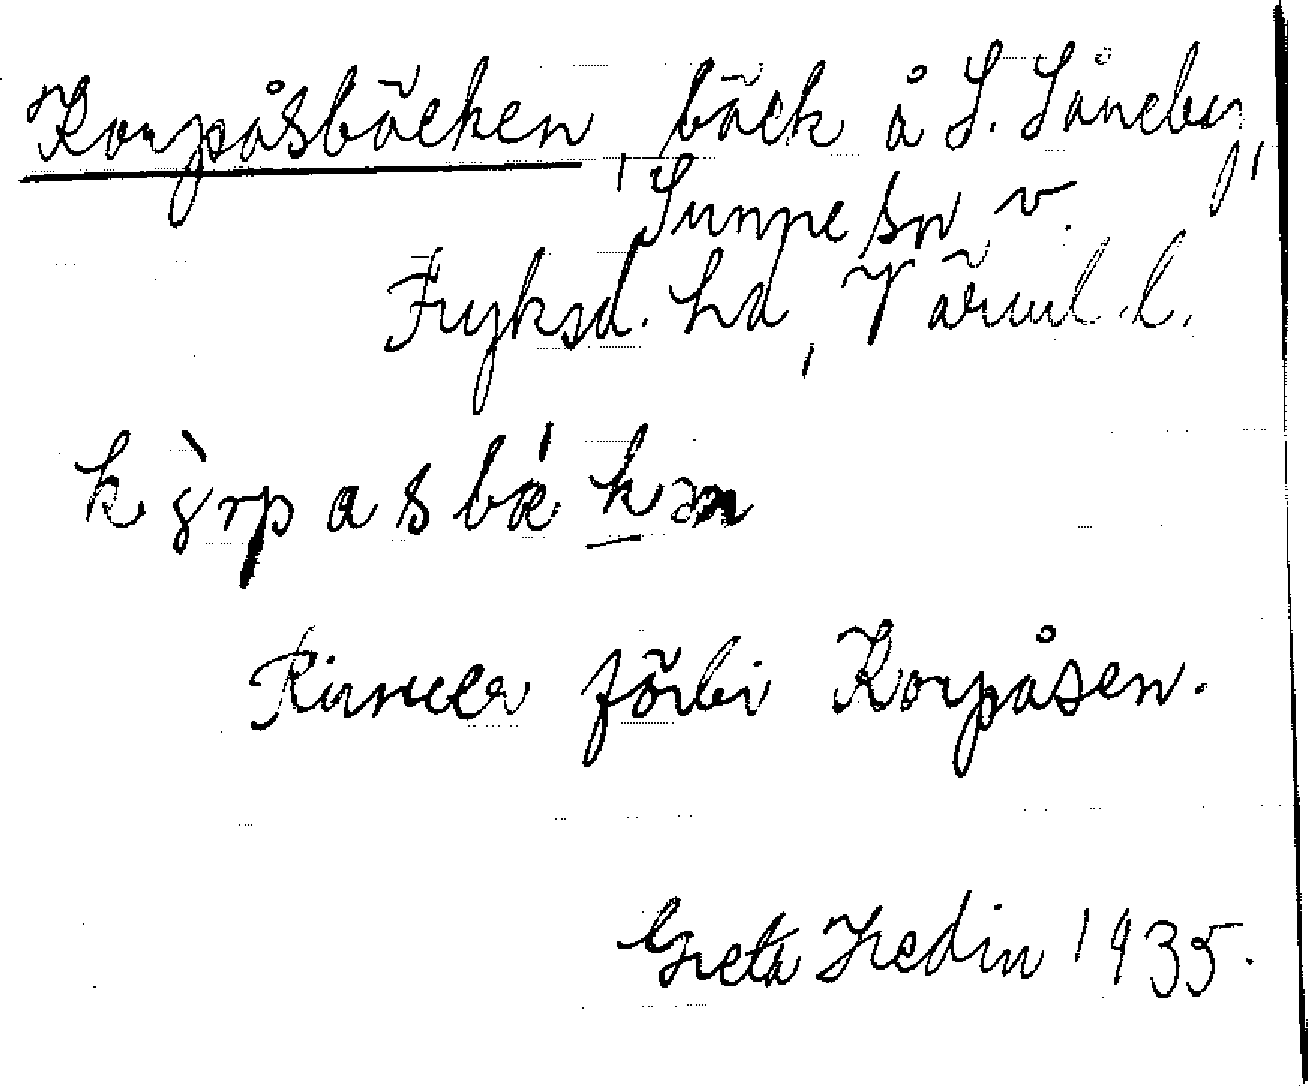 Korpåsbäcken, bäck å S. Såneby,
Sunne sn v.
Fryksd. hd, Värml. l.
Rinner förbi Korpåsen.
Greta Hedin 1935.